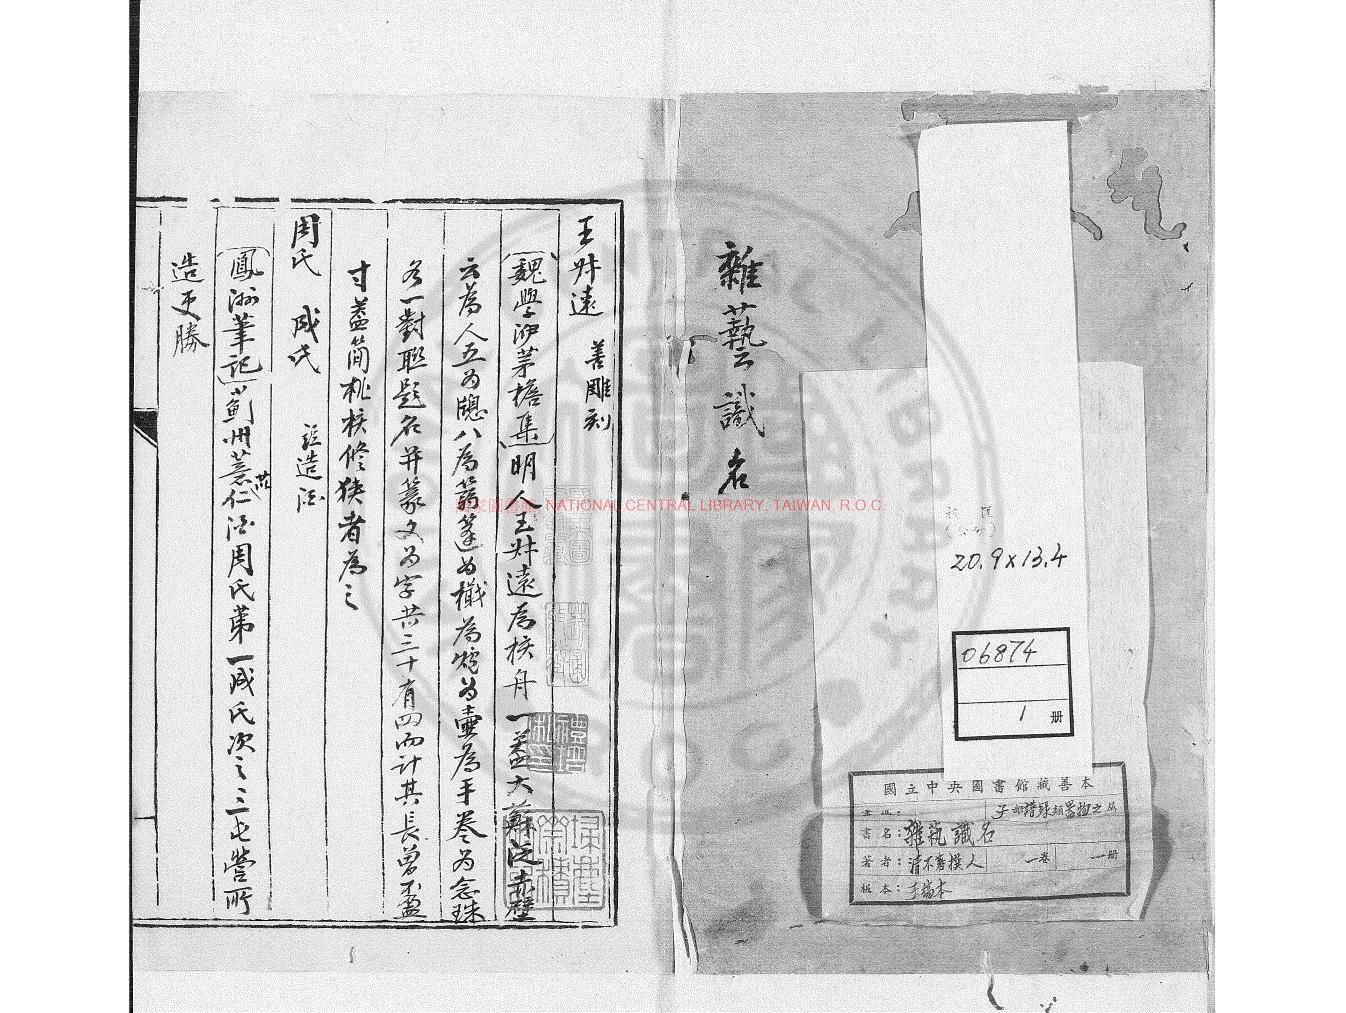 雜藝識名
20.9x13.4
06874
1 册
國立中央圖書館藏善本
子部譜錄類器物之屬
書名：雜藝識名
著者：清不著撰人 一卷 一册
板本：手稿本
NATIONAL CENTRAL LIBRARY, TAIWAN R O C
王叔遠 善雕刻
魏學洢茅檐集明人王叔遠為核舟一蓋大蘇泛赤壁
云為人五為牕八為篛篷為檝為爐為壺為手卷為念珠
各一對聯題名并篆文為字共三十有四而計其長曾不盈
寸蓋簡桃核修狹者為之
周氏 成氏 造酒
鳳洲筆記薊州薏苡仁酒周氏第一成氏次之三屯營所
造更勝